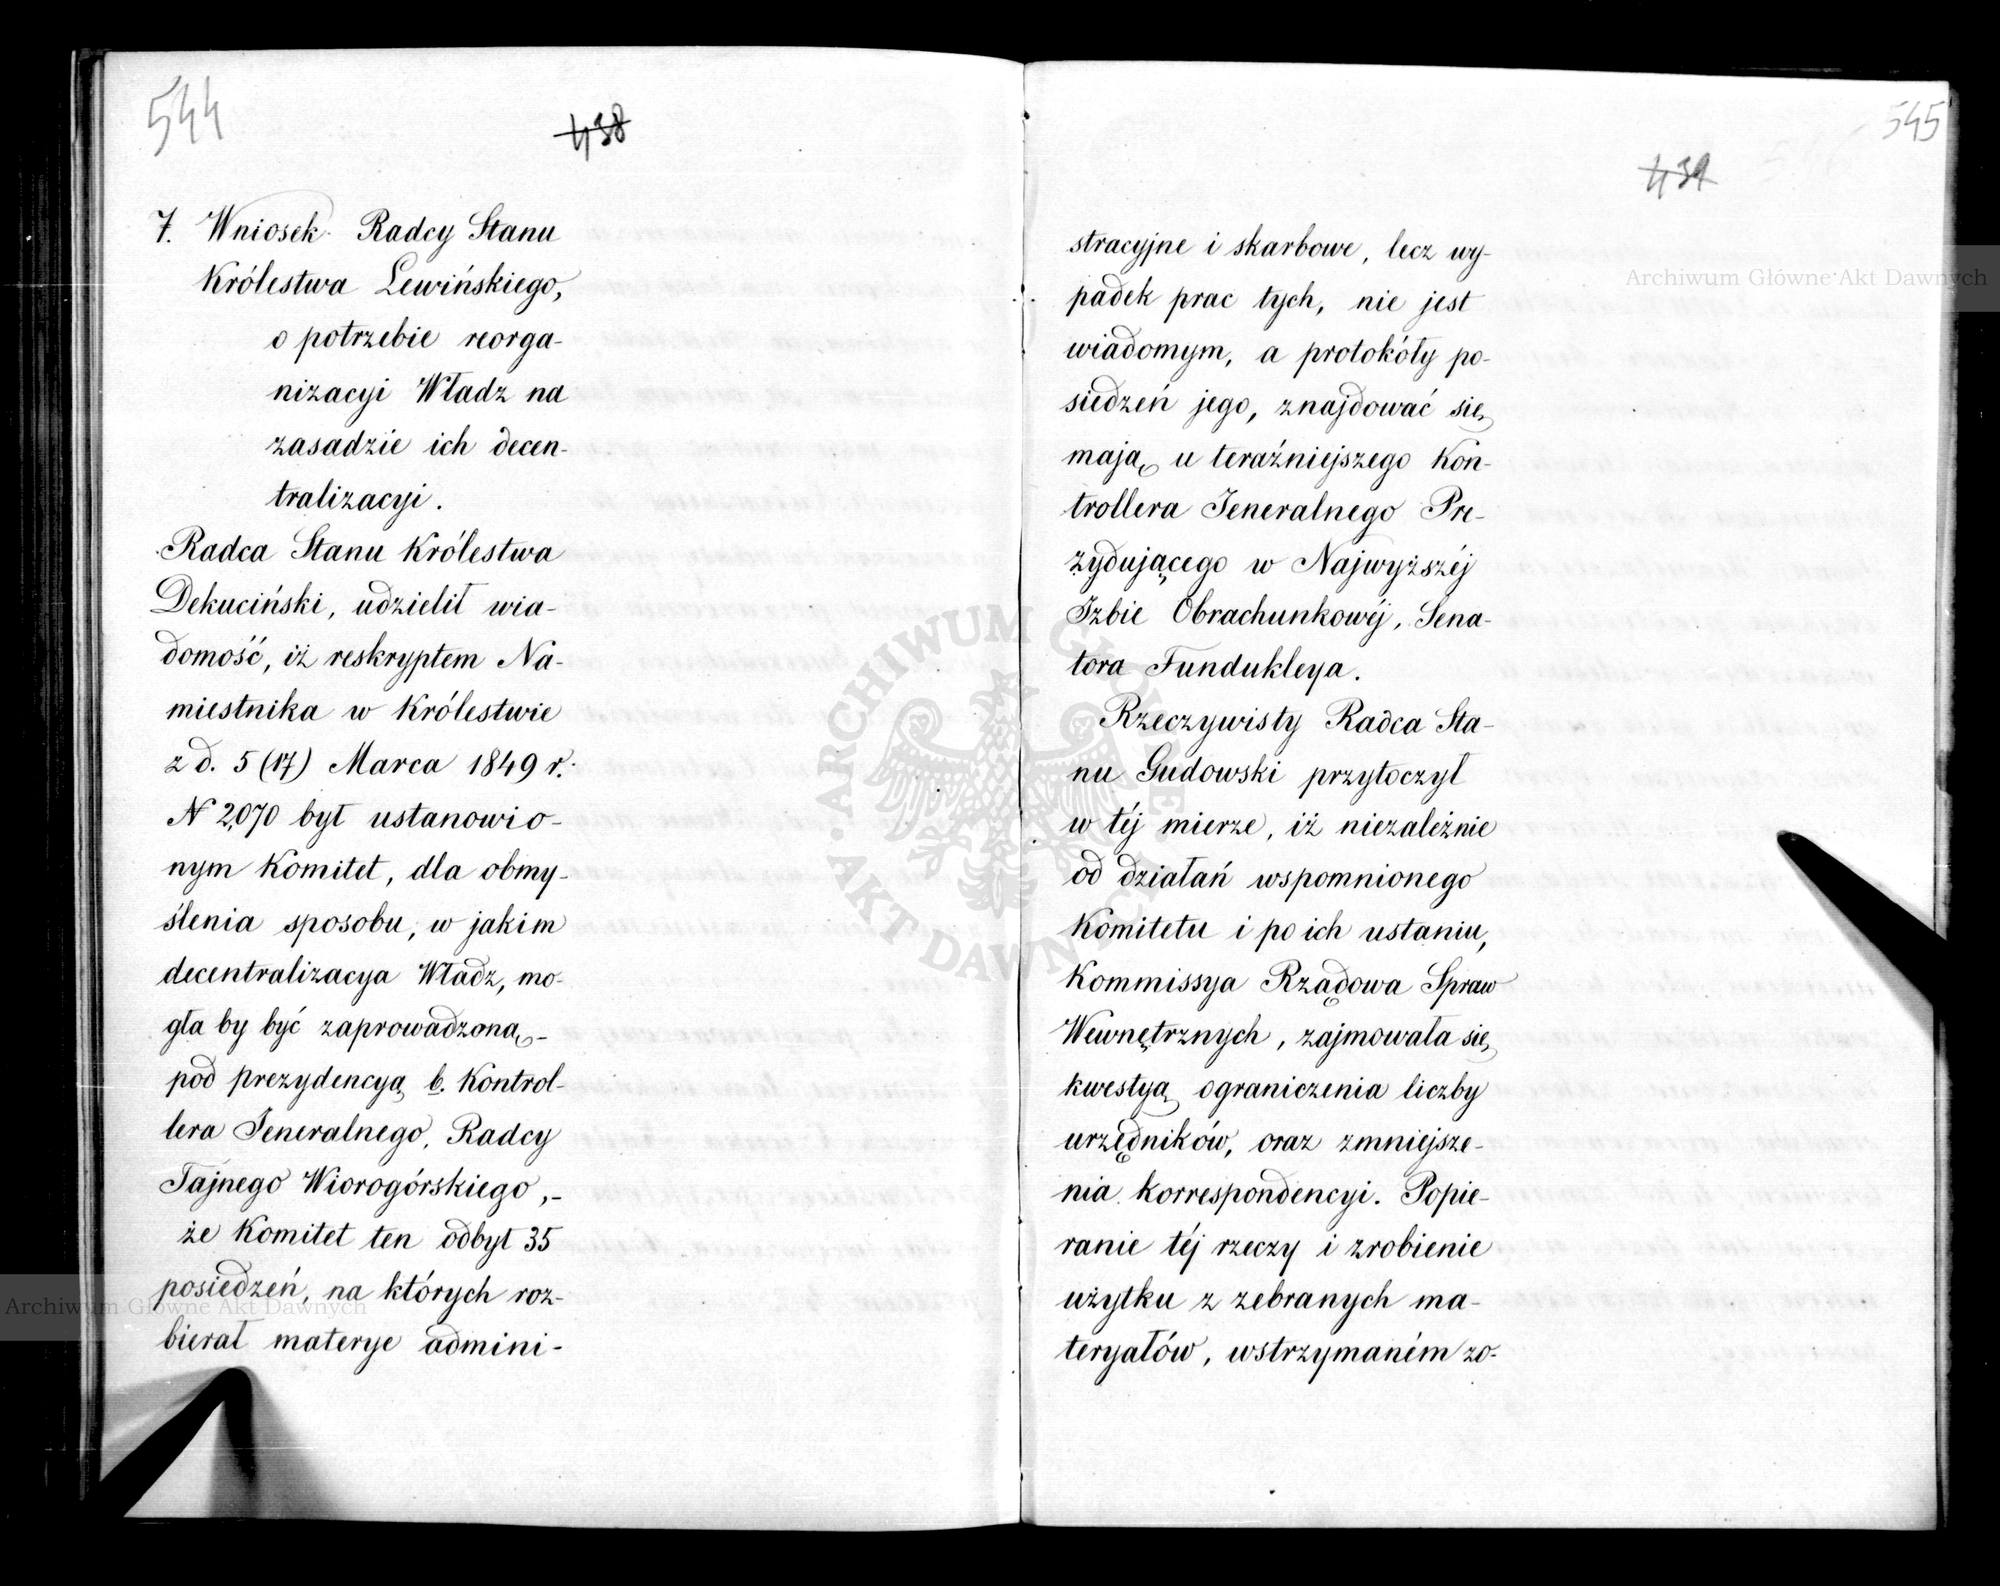 544
438
7. Wniosek Radcy Stanu
Królestwa Lewińskiego,
o potrzebie reorga-
nizacyi Władz na
zasadzie ich decen-
tralizacyi.
Radca Stanu Królestwa
Dekuciński, udzielił wia-
domość, iż reskryptem Na-
miestnika w Królestwie
z d. 5 (17) Marca 1849 r.
N 2,070 był ustanowio-
nym Komitet, dla obmy-
ślenia sposobu, w jakim
decentralizacya Władz, mo-
gła by być zaprowadzoną,-
pod prezydencyą b. Kontrol-
lera Jeneralnego, Radcy
Tajnego Wiorogórskiego,-
że Komitet ten odbył 35
posiedzeń, na których roz-
bierał materye admini-
545
439
stracyjne i skarbowe, lecz wy-
padek prac tych, nie jest
wiadomym, a protokóły po-
siedzeń jego, znajdować się
mają u teraźniejszego Kon-
trollera Jeneralnego Pre-
zydującego w Najwyższéj
Izbie Obrachunkowéj, Sena-
tora Fundukleya.
Rzeczywisty Radca Sta-
nu Gudowski przytoczył
w téj mierze, iż niezależnie
od działań wspomnionego
Komitetu i po ich ustaniu,
Kommissya Rządowa Spraw
Wewnętrznych, zajmowała się
kwestyą ograniczenia liczby
urzędników, oraz zmniejsze-
nia korrespondencyi. Popie-
ranie téj rzeczy i zrobienie
użytku z zebranych ma-
teryałów, wstrzymaném zo-
Archiwum Główne Akt Dawnych
Archiwum Główne Akt Dawnych
ARCHIWUM GŁÓWNE AKT DAWNYCH